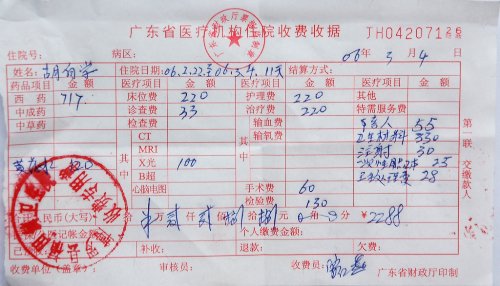 广东省医疗机构住院收费收据
JH042071
住院号: 病区: 06年 3月 4日
姓名: 住院日期:06.2.22至06.3.4. 11天 结算方式:
药品项目 金额 医疗项目 金额 医疗项目 金额 医疗项目 金额
西药 717. 床位费 220 护理费 220 其他
中成药 诊查费 33 治疗费 220 特需服务费
中草药 检查费 输血费 55
CT 输氧费 卫生材料 330
其中 MRI 其中 注射 30
420 X光 100 25
B超 28
心脑电图 手术费 60
检验费 130
合计人民币(大写) 万 仟 佰 拾 元 角 分 ¥2288
医记帐金额 个人缴费金额:
补收: 退款: 欠费:
收费单位(盖章): 审核员: 收费员: 广东省财政厅印制
第一联:交缴款人
收费专用章